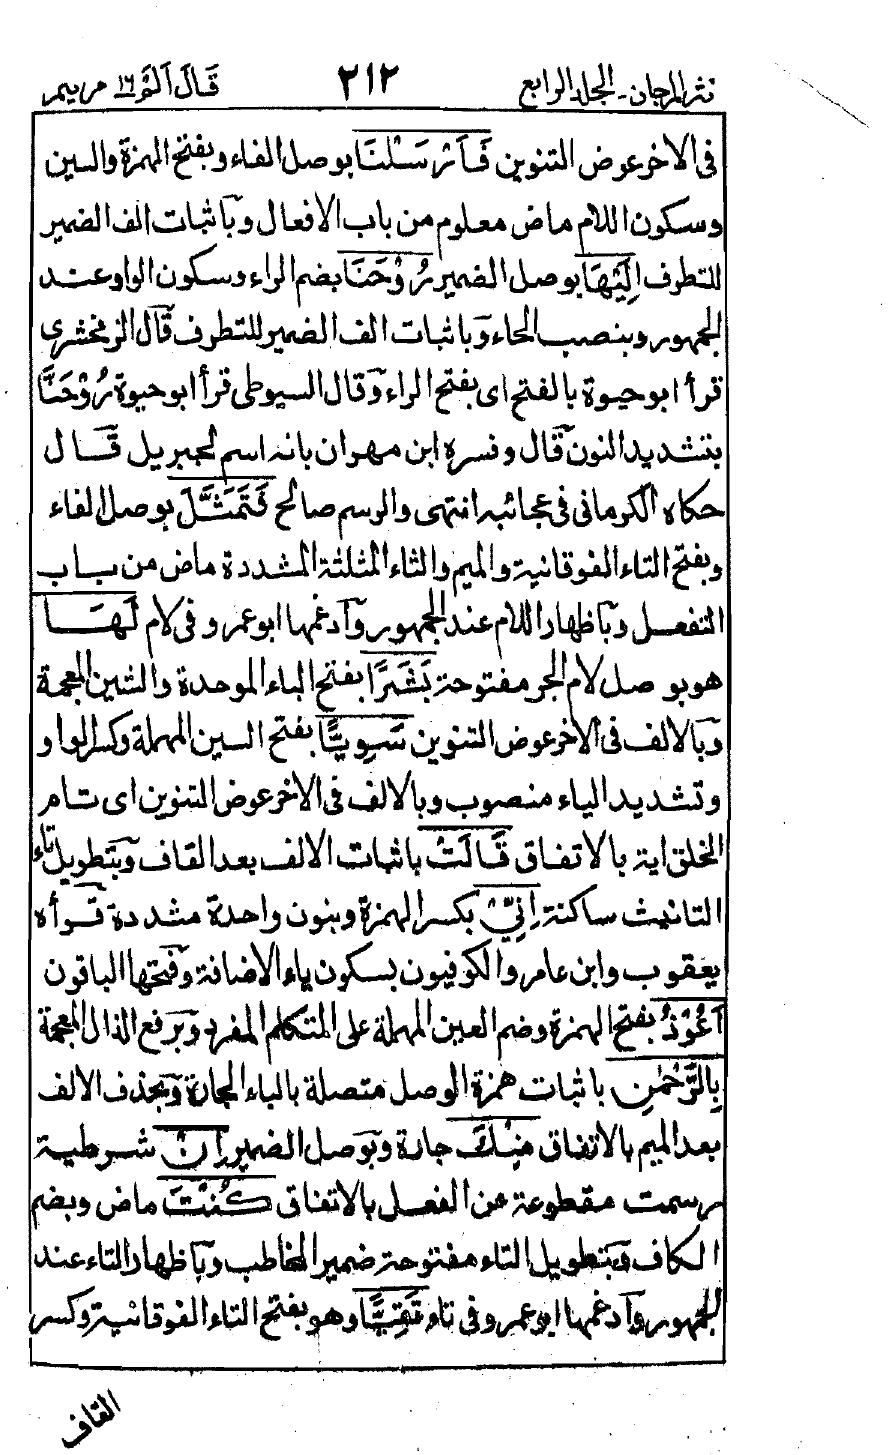 نثر المرجان - الجلد الرابع ٢١٢ قَالَ اَلَمْ ١٦ مريم
فى الاخر عوض التنوين فَاَرْسَلْنَا بوصل الفاء و بفتح الهمزة والسين
وسكون اللام ماض معلوم من باب الافعال وبآثبات الف الضمير
للتطرف اِلَيْهَا بوصل الضمير رُوْحَنَا بضم الراء وسكون الواو عند
الجمهور وبنصب الحاء وبآثبات الف الضمير للتطرف قال الزمخشرى
قرأ ابو حيوة بالفتح اى بفتح الراء وقال السيوطى قرأ ابو حيوة رُوْحَنَّا
بتشديد النون قال و فسره ابن مهران بانه اسم لجبريل قال
حكاه الكرمانى فى عجائبه انتهى والرسم صالح فَتَمَثَّلَ بوصل الفاء
وبفتح التاء الفوقانية والميم والثاء المثلثة المشددة ماض من باب
التفعل وبآظهار اللام عند الجمهور وآدغمها ابو عمرو فى لام لَهَا
هو بوصل لام الجر مفتوحة بَشَرًا بفتح الباء الموحدة والشين المعجمة
وبالالف فى الاخر عوض التنوين سَوِيًّا بفتح السين المهملة وكسر الواو
وتشديد الياء منصوب وبالالف فى الاخر عوض التنوين اى تام
الخلق اية بالاتفاق قَالَتْ باثبات الالف بعد القاف وبتطويل تاء
التانيث ساكنة اِنِّىْ بكسر الهمزة وبنون واحدة مشددة قرأه
يعقوب وابن عامر والكوفيون بسكون ياء الاضافة وفتحها الباقون
اَعُوْذُ بفتح الهمزة وضم العين المهملة على المتكلم المفرد وبرفع الذال المعجمة
بِالرَّحْمٰنِ باثبات همزة الوصل متصلة بالباء الجارة وبحذف الالف
بعد الميم بالاتفاق مِنْكَ جارة وبوصل الضمير اِنْ شرطية
رسمت مقطوعة عن الفعل بالاتفاق كُنْتَ ماض وبضم
الكاف وبتطويل التاء مفتوحة ضمير المخاطب وبآظهار التاء عند
الجمهور وآدغمها ابو عمرو فى تاء تَقِيًّا وهو بفتح التاء الفوقانية وكسر
القاف